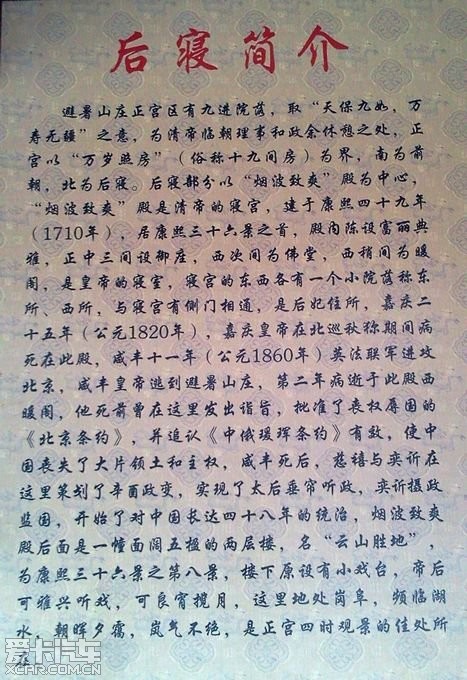 后寝简介
避暑山庄正宫区有九进院落，取“天保九如，万
寿无疆”之意，为清帝临朝理事和政余休憩之处，正
宫以“万岁照房”（俗称十九间房）为界，南为前
朝，北为后寝。后寝部分以“烟波致爽”殿为中心，
“烟波致爽”殿是清帝的寝宫，建于康熙四十九年
（1710年），居康熙三十六景之首，殿内陈设富丽典
雅，正中三间设御座，西次间为佛堂，西稍间为暖
阁，是皇帝的寝室，寝宫的东西各有一个小院落称东
所、西所，与寝宫有侧门相通，是后妃住所，嘉庆二
十五年（公元1820年），嘉庆皇帝在北巡秋狝期间病
死在此殿，咸丰十一年（公元1860年）英法联军进攻
北京，咸丰皇帝逃到避暑山庄，第二年病逝于此殿西
暖阁，他死前曾在这里发出诣旨，批准了丧权辱国的
《北京条约》，并追认《中俄瑷珲条约》有效，使中
国丧失了大片领土和主权，咸丰死后，慈禧与奕訢在
这里策划了辛酉政变，实现了太后垂帘听政，奕訢摄政
监国，开始了对中国长达四十八年的统治，烟波致爽
殿后面是一幢面阔五楹的两层楼，名“云山胜地”，
为康熙三十六景之第八景，楼下原设有小戏台，帝后
可雅兴听戏，可良宵揽月，这里地处岗阜，频临湖
水，朝晖夕霭，岚气不绝，是正宫四时观景的佳处所
在。
爱卡汽车
XCAR.COM.CN